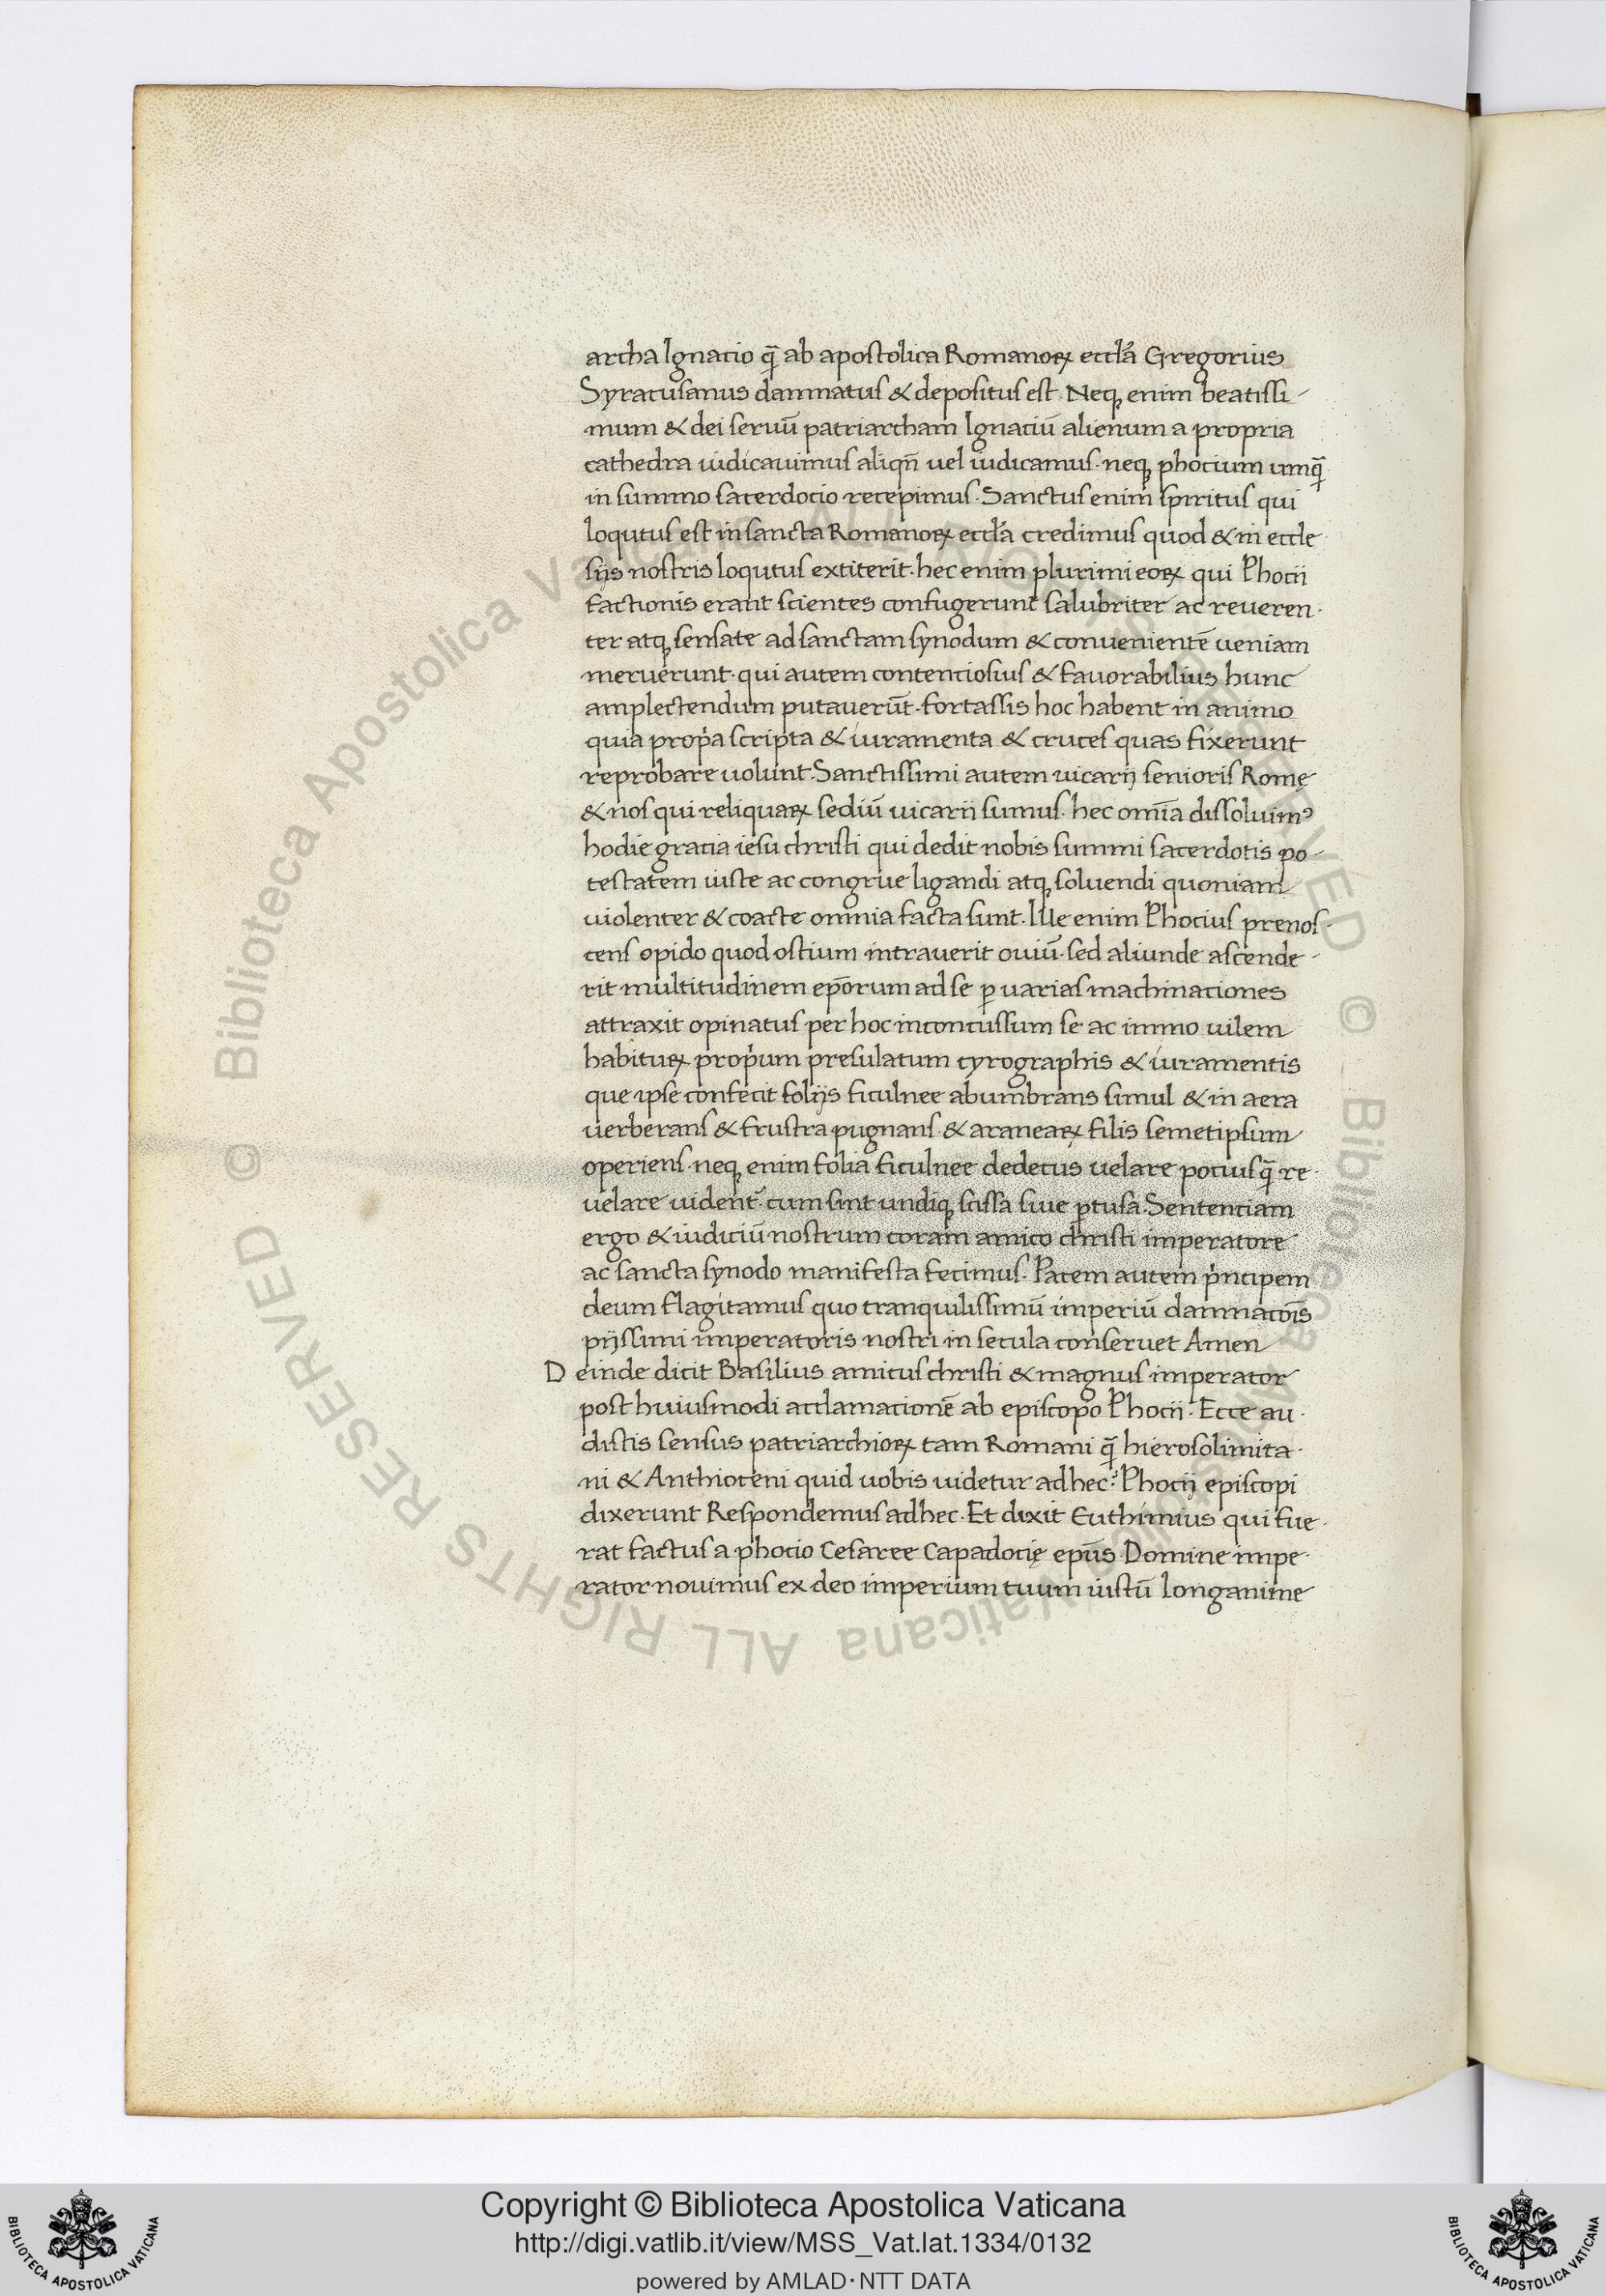 archa Ignatio q̃ ab apostolica Romanoꝝ eccl̃a Gregorius
Syracusanus damnatus & depositus est. Neqꝫ enim beatissi-
mum & dei seruũ patriarcham Ignatiũ alienum a propria
cathedra iudicauimus aliqñ uel iudicamus. neqꝫ photium umq̃
in summo sacerdotio recepimus. Sanctus enim spiritus qui
loqutus est in sancta Romanoꝝ eccl̃a credimus quod & in eccle
sijs nostris loqutus extiterit. hec enim plurimi eoꝝ qui Photij
factionis erant scientes confugerunt salubriter ac reueren-
ter atqꝫ sensate ad sanctam synodum & conuenientẽ ueniam
meruerunt. qui autem contentiosius & fauorabilius hunc
amplectendum putauerũt. fortassis hoc habent in animo
quia prop̃a scripta & iuramenta & cruces quas fixerunt
reprobare uolunt. Sanctissimi autem uicarij senioris Romę
& nos qui reliquaꝝ sediũ uicarii sumus. hec om̃ia dissoluimꝰ
hodie gratia iesu christi qui dedit nobis summi sacerdotis po-
testatem iuste ac congrue ligandi atqꝫ soluendi quoniam
uiolenter & coacte omnia facta sunt. Ille enim Photius prenos-
cens opido quod ostium intrauerit ouiũ. sed aliunde ascende-
rit multitudinem ep̃orum ad se ꝑ uarias machinationes
attraxit opinatus per hoc inconcussum se ac immo uilem
habituꝝ prop̃um presulatum cyrographis & iuramentis
que ipse confecit folijs ficulnee abumbrans simul & in aera
uerberans & frustra pugnans. & araneaꝝ filis semetipsum
operiens. neqꝫ enim folia ficulnee dedecus uelare potiusq̃ re-
uelare uident̃. cum sint undiqꝫ scissa siue ꝑtusa. Sententiam
ergo & iudiciũ nostrum coram amico christi imperatore
ac sancta synodo manifesta fecimus. Patem autem p̃ncipem
deum flagitamus quo tranquilissimũ imperiũ damnatõis
pijssimi imperatoris nostri in secula conseruet Amen
Deinde dicit Basilius amicus christi & magnus imperator
post huiusmodi acclamationẽ ab episcopo Photii. Ecce au-
distis sensus patriarchioꝝ tam Romani q̃ hierosolimita-
ni & Anthioceni quid uobis uidetur ad hec? Photij episcopi
dixerunt Respondemus ad hec. Et dixit Euthimius qui fue-
rat factus a photio Cesaree Capadocię ep̃us Domine impe-
rator nouimus ex deo imperium tuum iustũ longanime
Copyright © Biblioteca Apostolica Vaticana
http://digi.vatlib.it/view/MSS_Vat.lat.1334/0132
powered by AMLAD·NTT DATA
BIBLIOTECA APOSTOLICA VATICANA
BIBLIOTECA APOSTOLICA VATICANA
© Biblioteca Apostolica Vaticana ALL RIGHTS RESERVED © Biblioteca Apostolica Vaticana ALL RIGHTS RESERVED